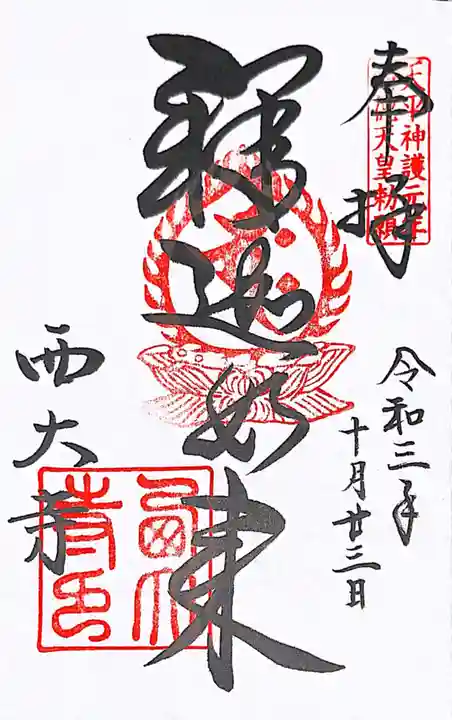 奉拝
天平神護元年
称徳天皇勅願
令和三年
十月廿三日
釋迦如来
西大寺
西大寺印